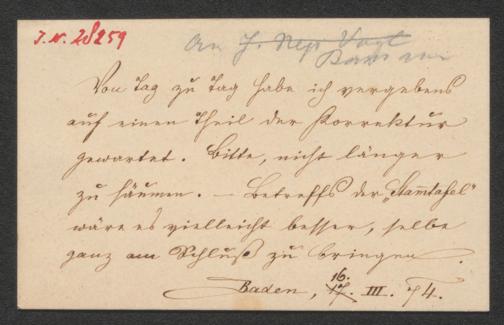 J. N. 28259
An J. Nep. Vogl
Von Tag zu Tag habe ich vergebens
auf einen Theil der Korrektur
gewartet. Bitte, nicht länger
zu säumen. — Betreffs der „Stam̄tafel"
wäre es vielleicht besser, selbe
ganz am Schluß zu bringen.
Baden, 16. III. 74.